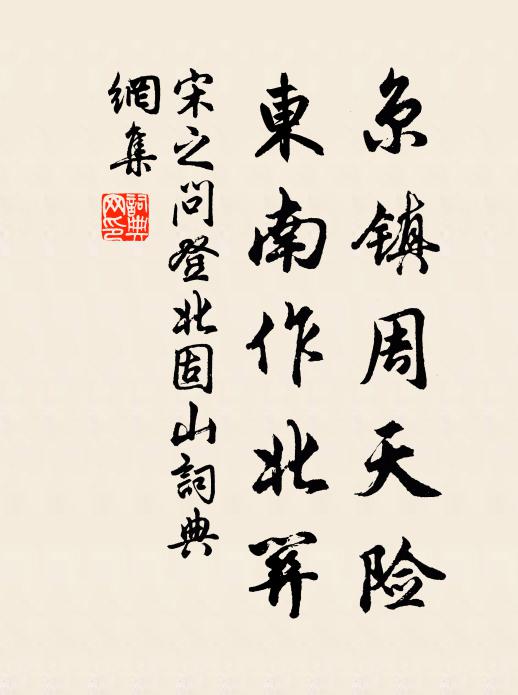 京镇周天险
東南作北関
宋之问登北固山詞典
網集
詞典网印